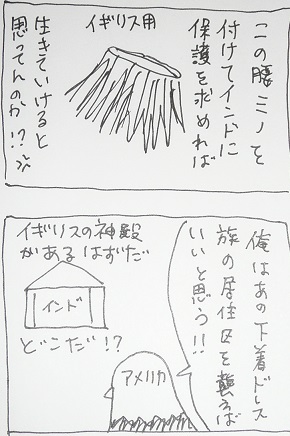 この腰ミノを
付けてインドに
保護を求めれば
イギリス用
生きていけると
思ってんのか!?
俺はあの下着ドレス
族の居住区を襲えば
いいと思う!!
イギリスの神殿
があるはずだ
インド
どこだ!?
アメリカ